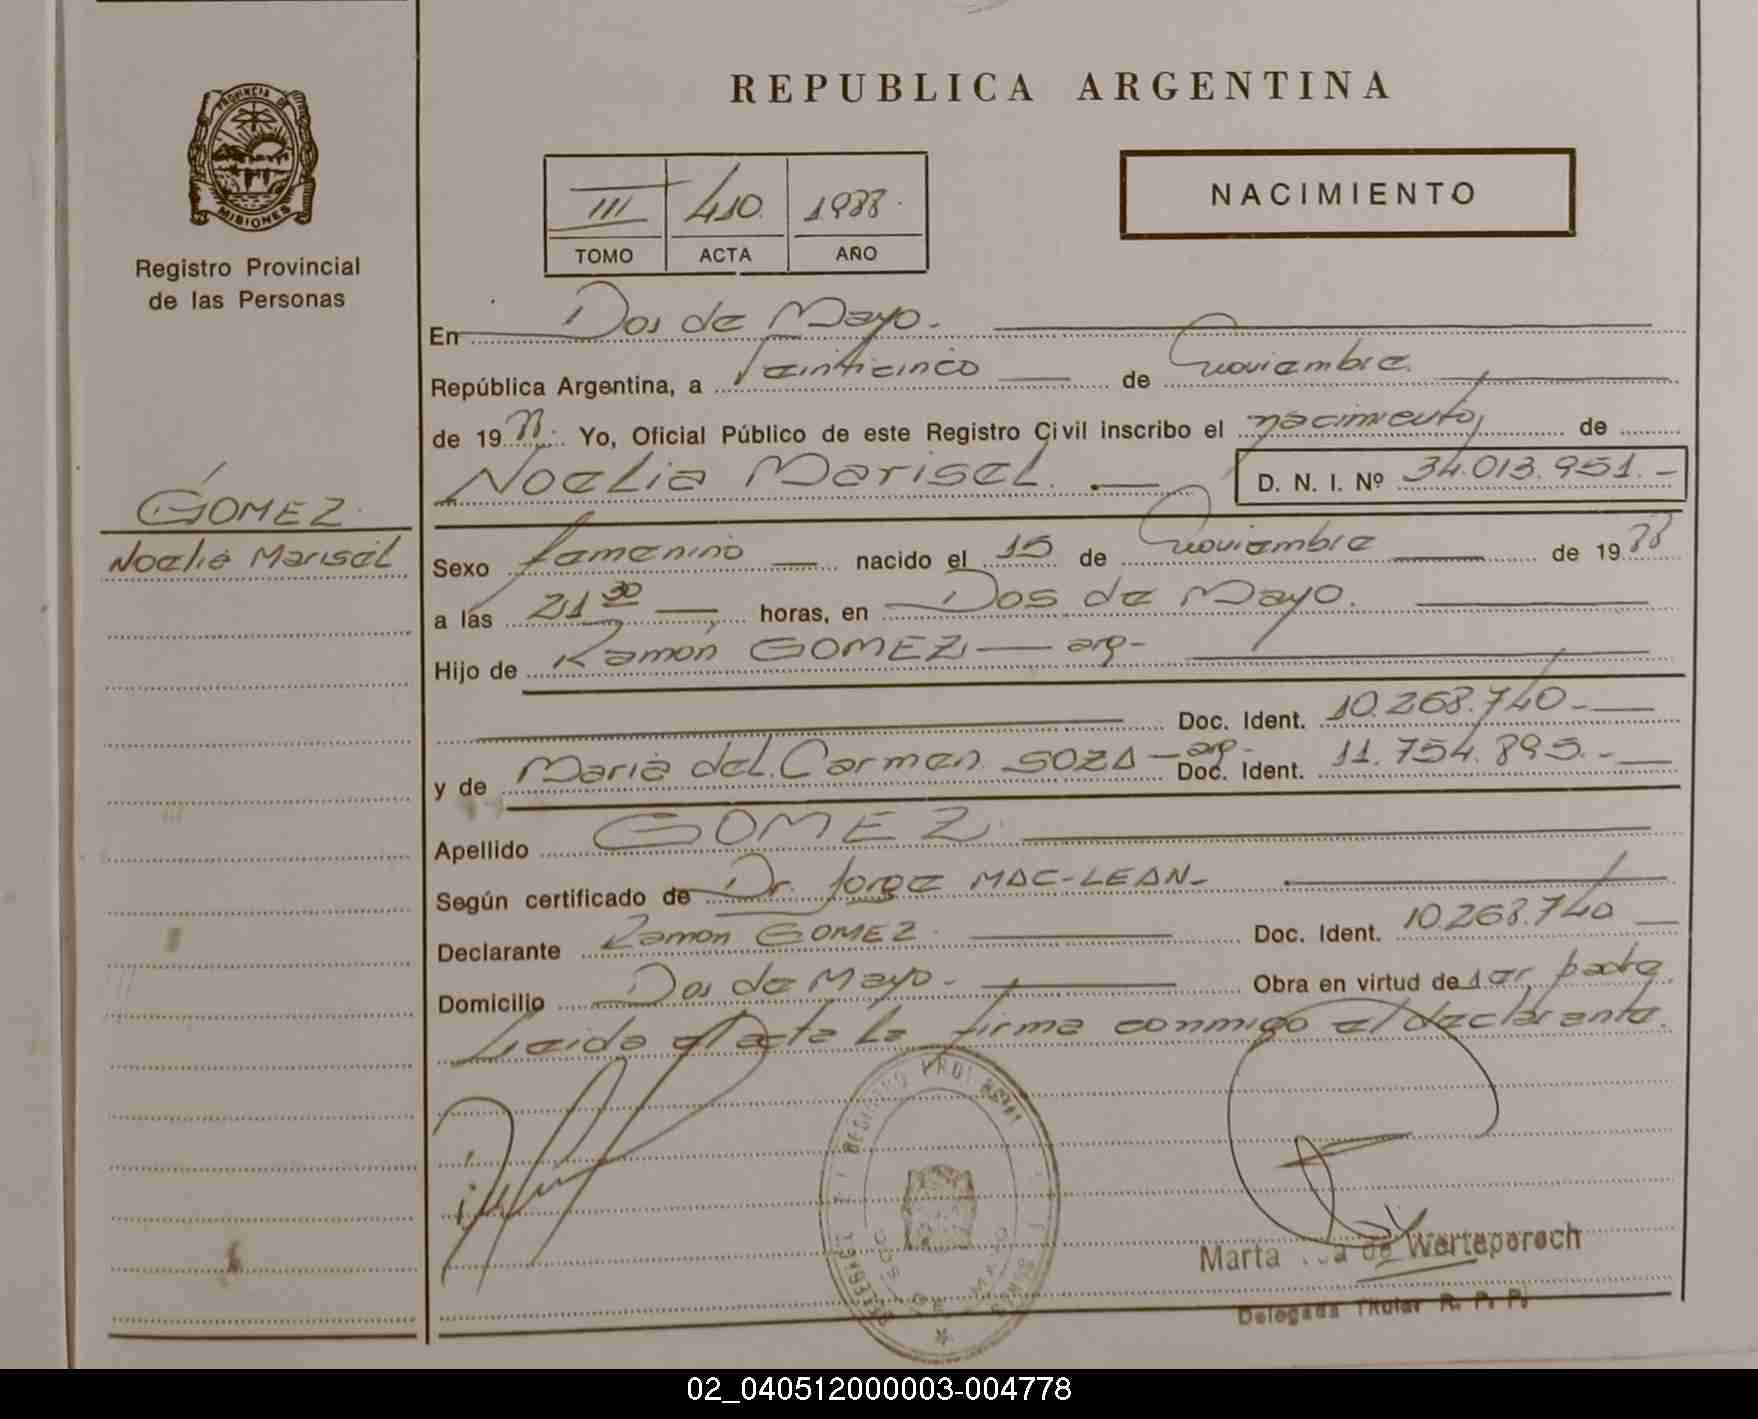 PROVINCIA DE
MISIONES
Registro Provincial
de las Personas
GOMEZ
Noelia Marisel
REPUBLICA ARGENTINA
NACIMIENTO
III 410. 1988.
TOMO ACTA AÑO
En Dos de Mayo.
República Argentina, a Veinticinco de Noviembre
de 1988. Yo, Oficial Público de este Registro Civil inscribo el nacimiento, de
Noelia Marisel. D. N. I. Nº 34.013.951.-
Sexo femenino nacido el 15 de Noviembre de 1988
a las 21 30 horas, en Dos de Mayo.
Hijo de Ramón GOMEZ, — arg-
Doc. Ident. 10.268.740-
y de María del Carmen SOZA - arg- Doc. Ident. 11.754.895.-
Apellido GOMEZ.
Según certificado de Dr. Jorge MAC-LEAN-
Declarante Ramón GOMEZ. Doc. Ident. 10.268.740
Domicilio Dos de Mayo. Obra en virtud de 1er, parte.
Leida el acta la firma conmigo el declarante.
Marta de Werteperoch
Delegada Titular R. P. P.
02_040512000003-004778